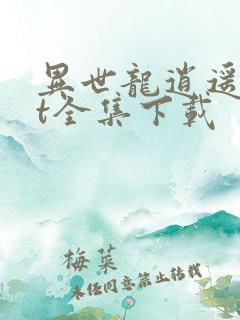 異世龍逍遥
t全集下載
梅菜
未经同意禁止转载